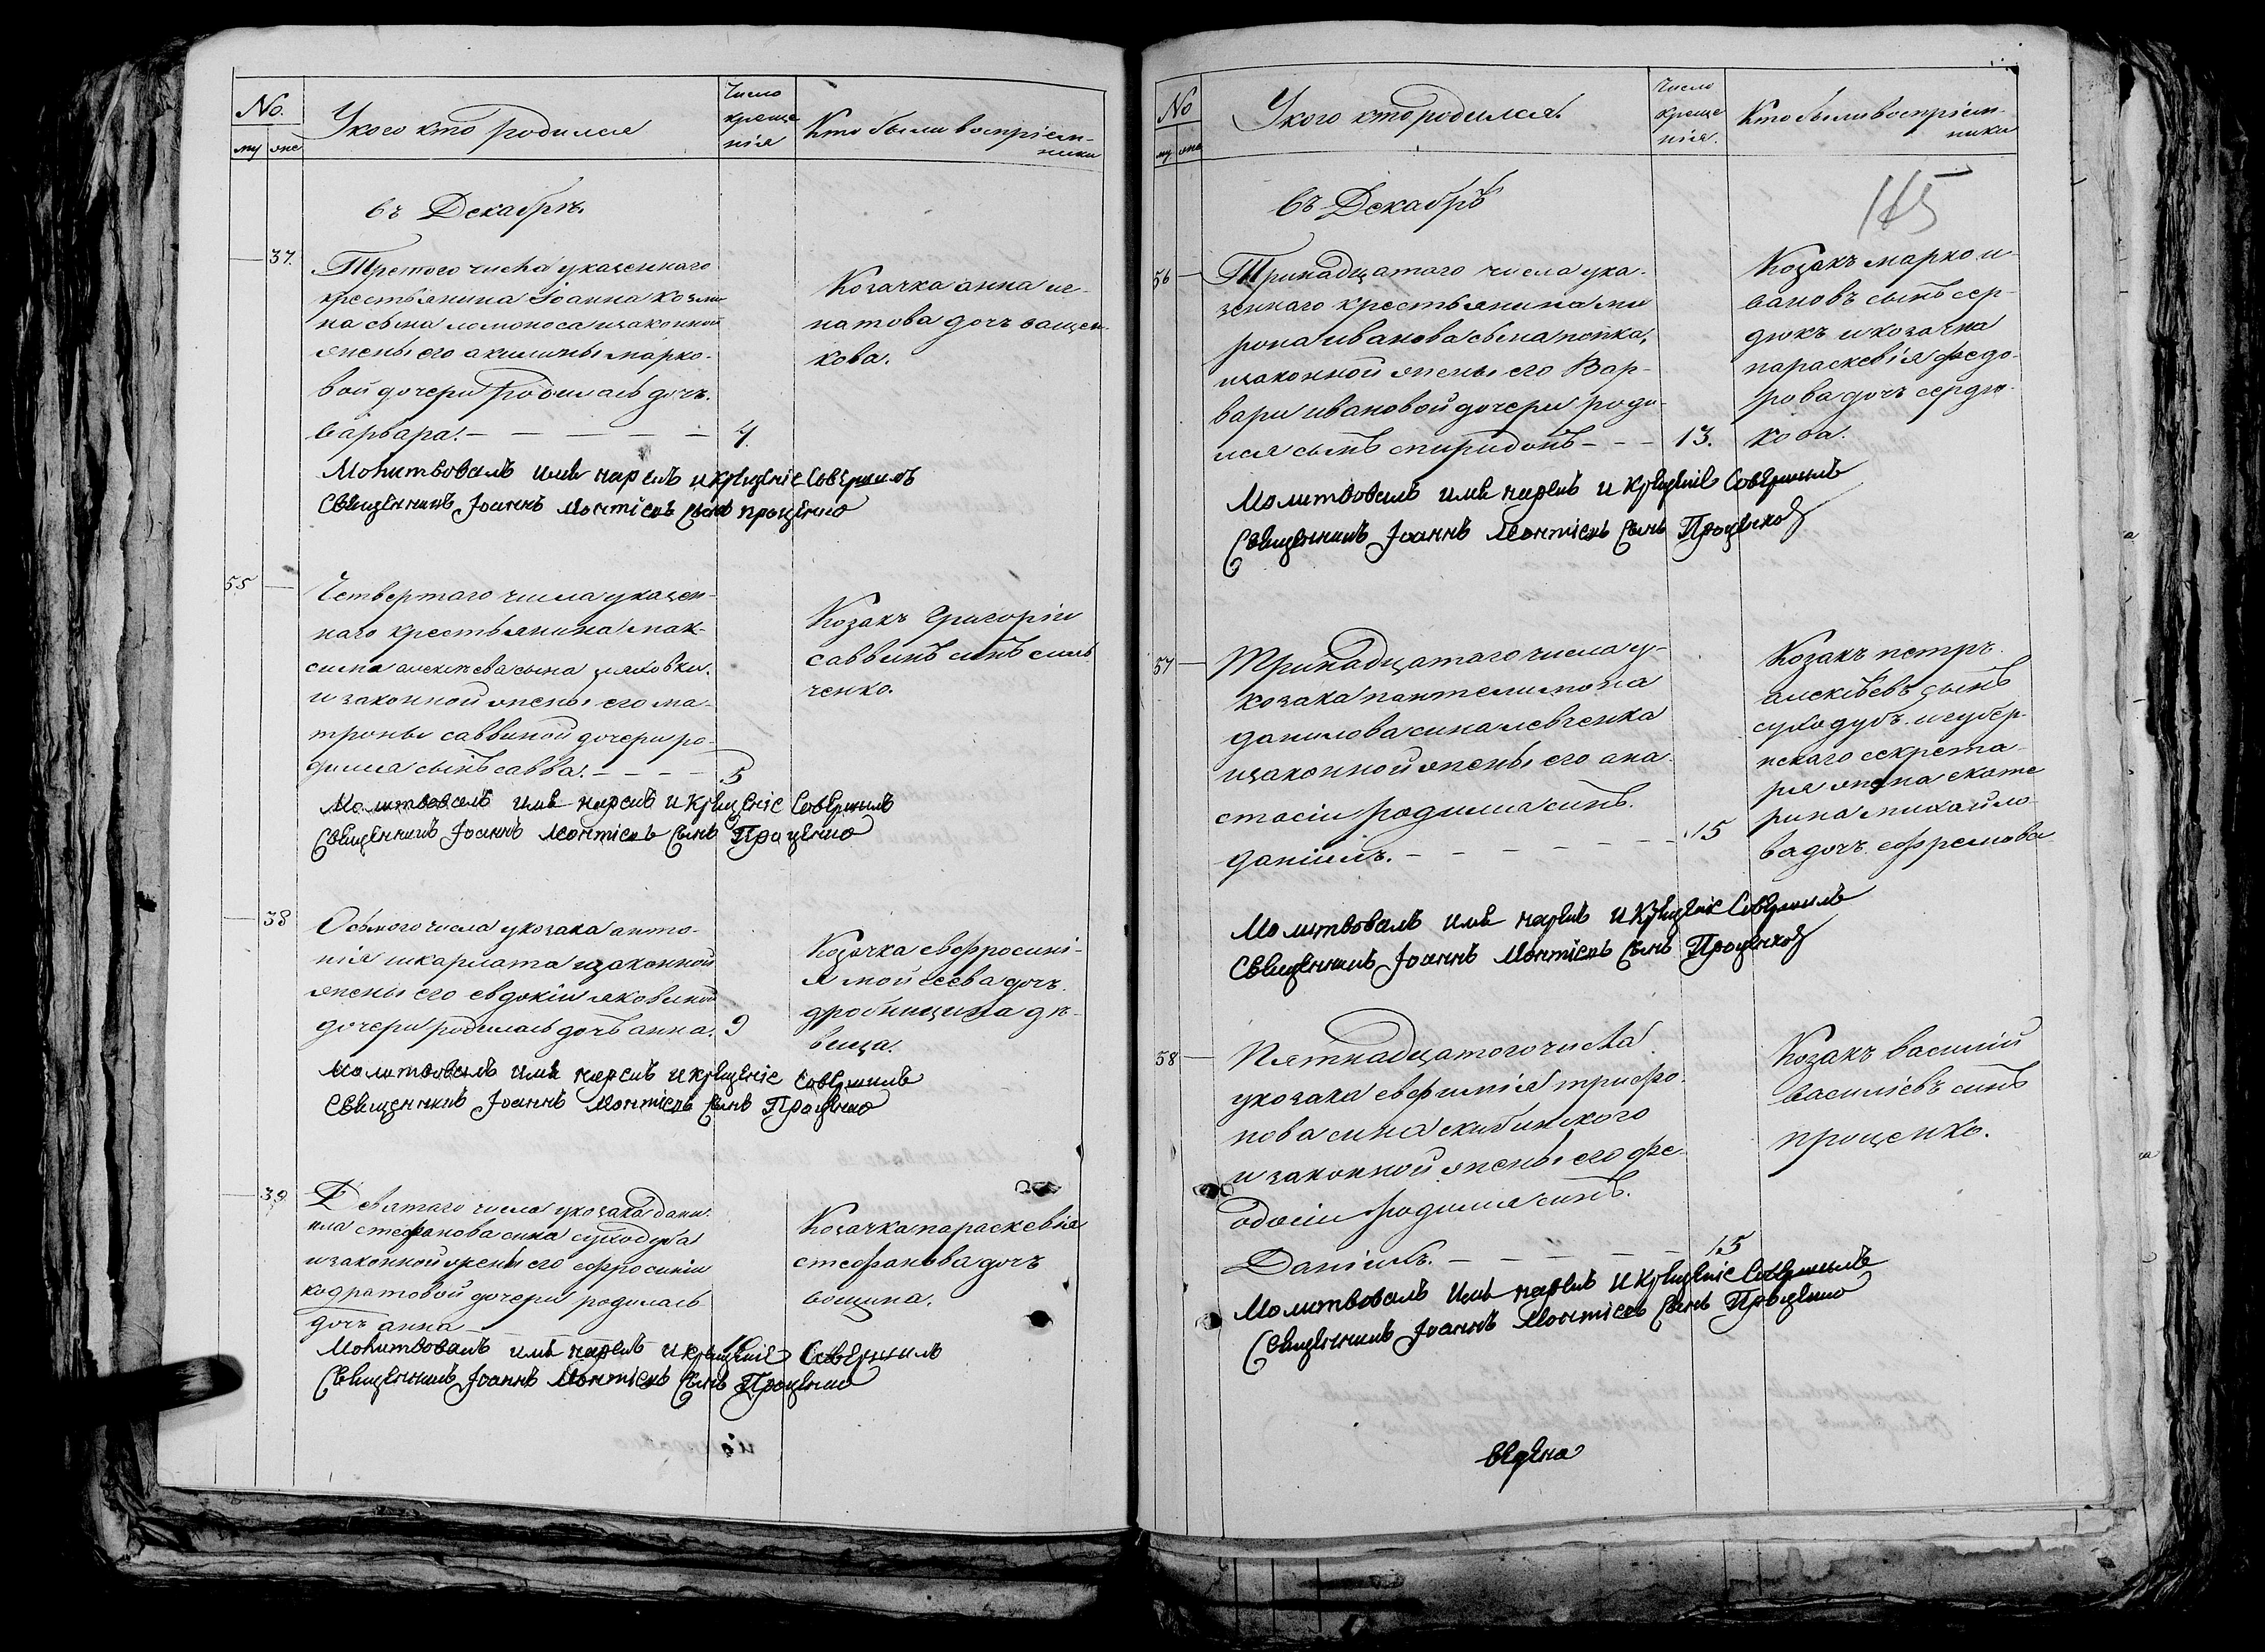 No.
му
же
У кого кто родился
Число
креще
нія
Кто были воспріем-
ники
въ Декабрѣ.
37.
Третого числа у казеннаго
крестьянина Іоанна козми
на сына ломоноса и законной
жены его акилины марко-
вой дочери родилась дочъ.
варвара. – – – – – 4.
Козачка анна иг-
натова дочъ ващен-
кова.
Молитвовалъ имя нарекъ и крещеніе совершилъ
Священникъ Іоаннъ Леонтіевъ сынъ Проценко
55
Четвертаго числа у казен-
наго крестьянина мак-
сима алексѣева сына
и законной жены его ма-
троны саввиной дочери ро-
дился сынъ савва. – – – – 5
Козакъ Григорій
саввинъ синъ
ченко.
Молитвовалъ имя нарекъ и крещеніе совершилъ
Священникъ Іоаннъ Леонтіевъ сынъ Проценко
38
Осьмого числа у козака анто-
нія шкарлата и законной
жены его евдокіи яковиной
дочери родилась дочъ анна. 9
Козачка евфросині-
я мойсеева дочъ
дробницина дѣ-
вица.
Молитвовалъ имя нарекъ и крещеніе совершилъ
Священникъ Іоаннъ Леонтіевъ сынъ Проценко
39.
Девятаго числа у козака дани-
ила стефанова сина суходуба
и законной жены его ефросиніи
кодратовой дочери родилась
дочъ анна
Козачка параскевія
стефанова дочъ
Молитвовалъ имя нарекъ и крещеніе совершилъ
Священникъ Іоаннъ Леонтіевъ сынъ Проценко
No
му
же
У кого кто родился.
Число
креще
нія.
Кто были воспріем-
ники
въ Декабрѣ
115
56
Тринадцатаго числа у ка-
зеннаго крестьянина ми
рона иванова сына попка,
и законной жены его Вар-
вари ивановой дочери роди-
лся сынъ спиридонъ – – – 13.
Козакъ марко и-
вановъ сынъ сер-
дюкъ и козачка
параскевія федо-
рова дочъ сердю-
кова.
Молитвовалъ имя нарекъ и крещеніе совершилъ
Священникъ Іоаннъ Леонтіевъ сынъ Проценко
57
Тринадцатаго числа у
козака пантелимона
данилова сина левченка
и законной жены его ана-
стасіи родился синъ.
даніилъ. – – – – – – – 15
Козакъ петръ
алексѣевъ сынъ
суходубъ. и губер-
нскаго секрета-
ря жена екате
рина михайло-
ва дочъ ефремова
Молитвовалъ имя нарекъ и крещеніе совершилъ
Священникъ Іоаннъ Леонтіевъ сынъ Проценко
58
Пятнадцатого числа
у козака евфимія трифо-
нова сина скибинского
и законной жены его фе-
одосіи родился синъ.
Даніилъ. – – – – – 15
Козакъ василій
василіевъ синъ
проценко.
Молитвовалъ имя нарекъ и крещеніе совершилъ
Священникъ Іоаннъ Леонтіевъ сынъ Проценко
ведена